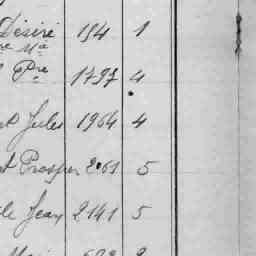 Désiré 194 1
re Ma
Pre 1797 4
Jules 1964 4
t Prosper 2061 5
le Jean 2141 5